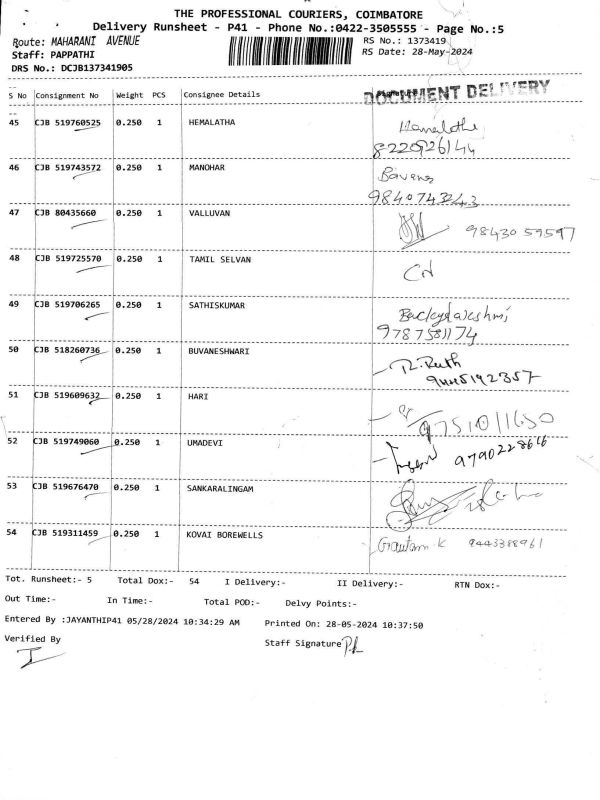 THE PROFESSIONAL COURIERS, COIMBATORE
Delivery Runsheet - P41 - Phone No.:0422-3505555 - Page No.:5
Route: MAHARANI AVENUE
RS No.: 1373419
Staff: PAPPATHI
RS Date: 28-May-2024
DRS No.: DCJB137341905
S No Consignment No Weight PCS Consignee Details
DOCUMENT DELIVERY
45 CJB 519760525 0.250 1 HEMALATHA Hamalatha
8220926144
46 CJB 519743572 0.250 1 MANOHAR
9840743243
47 CJB 80435660 0.250 1 VALLUVAN 9843059597
48 CJB 519725570 0.250 1 TAMIL SELVAN
49 CJB 519706265 0.250 1 SATHISKUMAR
9787581174
50 CJB 518260736 0.250 1 BUVANESHWARI R. Ruth
9445192357
51 CJB 519609632 0.250 1 HARI
9751011650
52 CJB 519749060 0.250 1 UMADEVI
9790228666
53 CJB 519676470 0.250 1 SANKARALINGAM
54 CJB 519311459 0.250 1 KOVAI BOREWELLS Gautam K 9443388961
Tot. Runsheet:- 5 Total Dox:- 54 I Delivery:- II Delivery:- RTN Dox:-
Out Time:- In Time:- Total POD:- Delvy Points:-
Entered By :JAYANTHIP41 05/28/2024 10:34:29 AM Printed On: 28-05-2024 10:37:50
Verified By Staff Signature